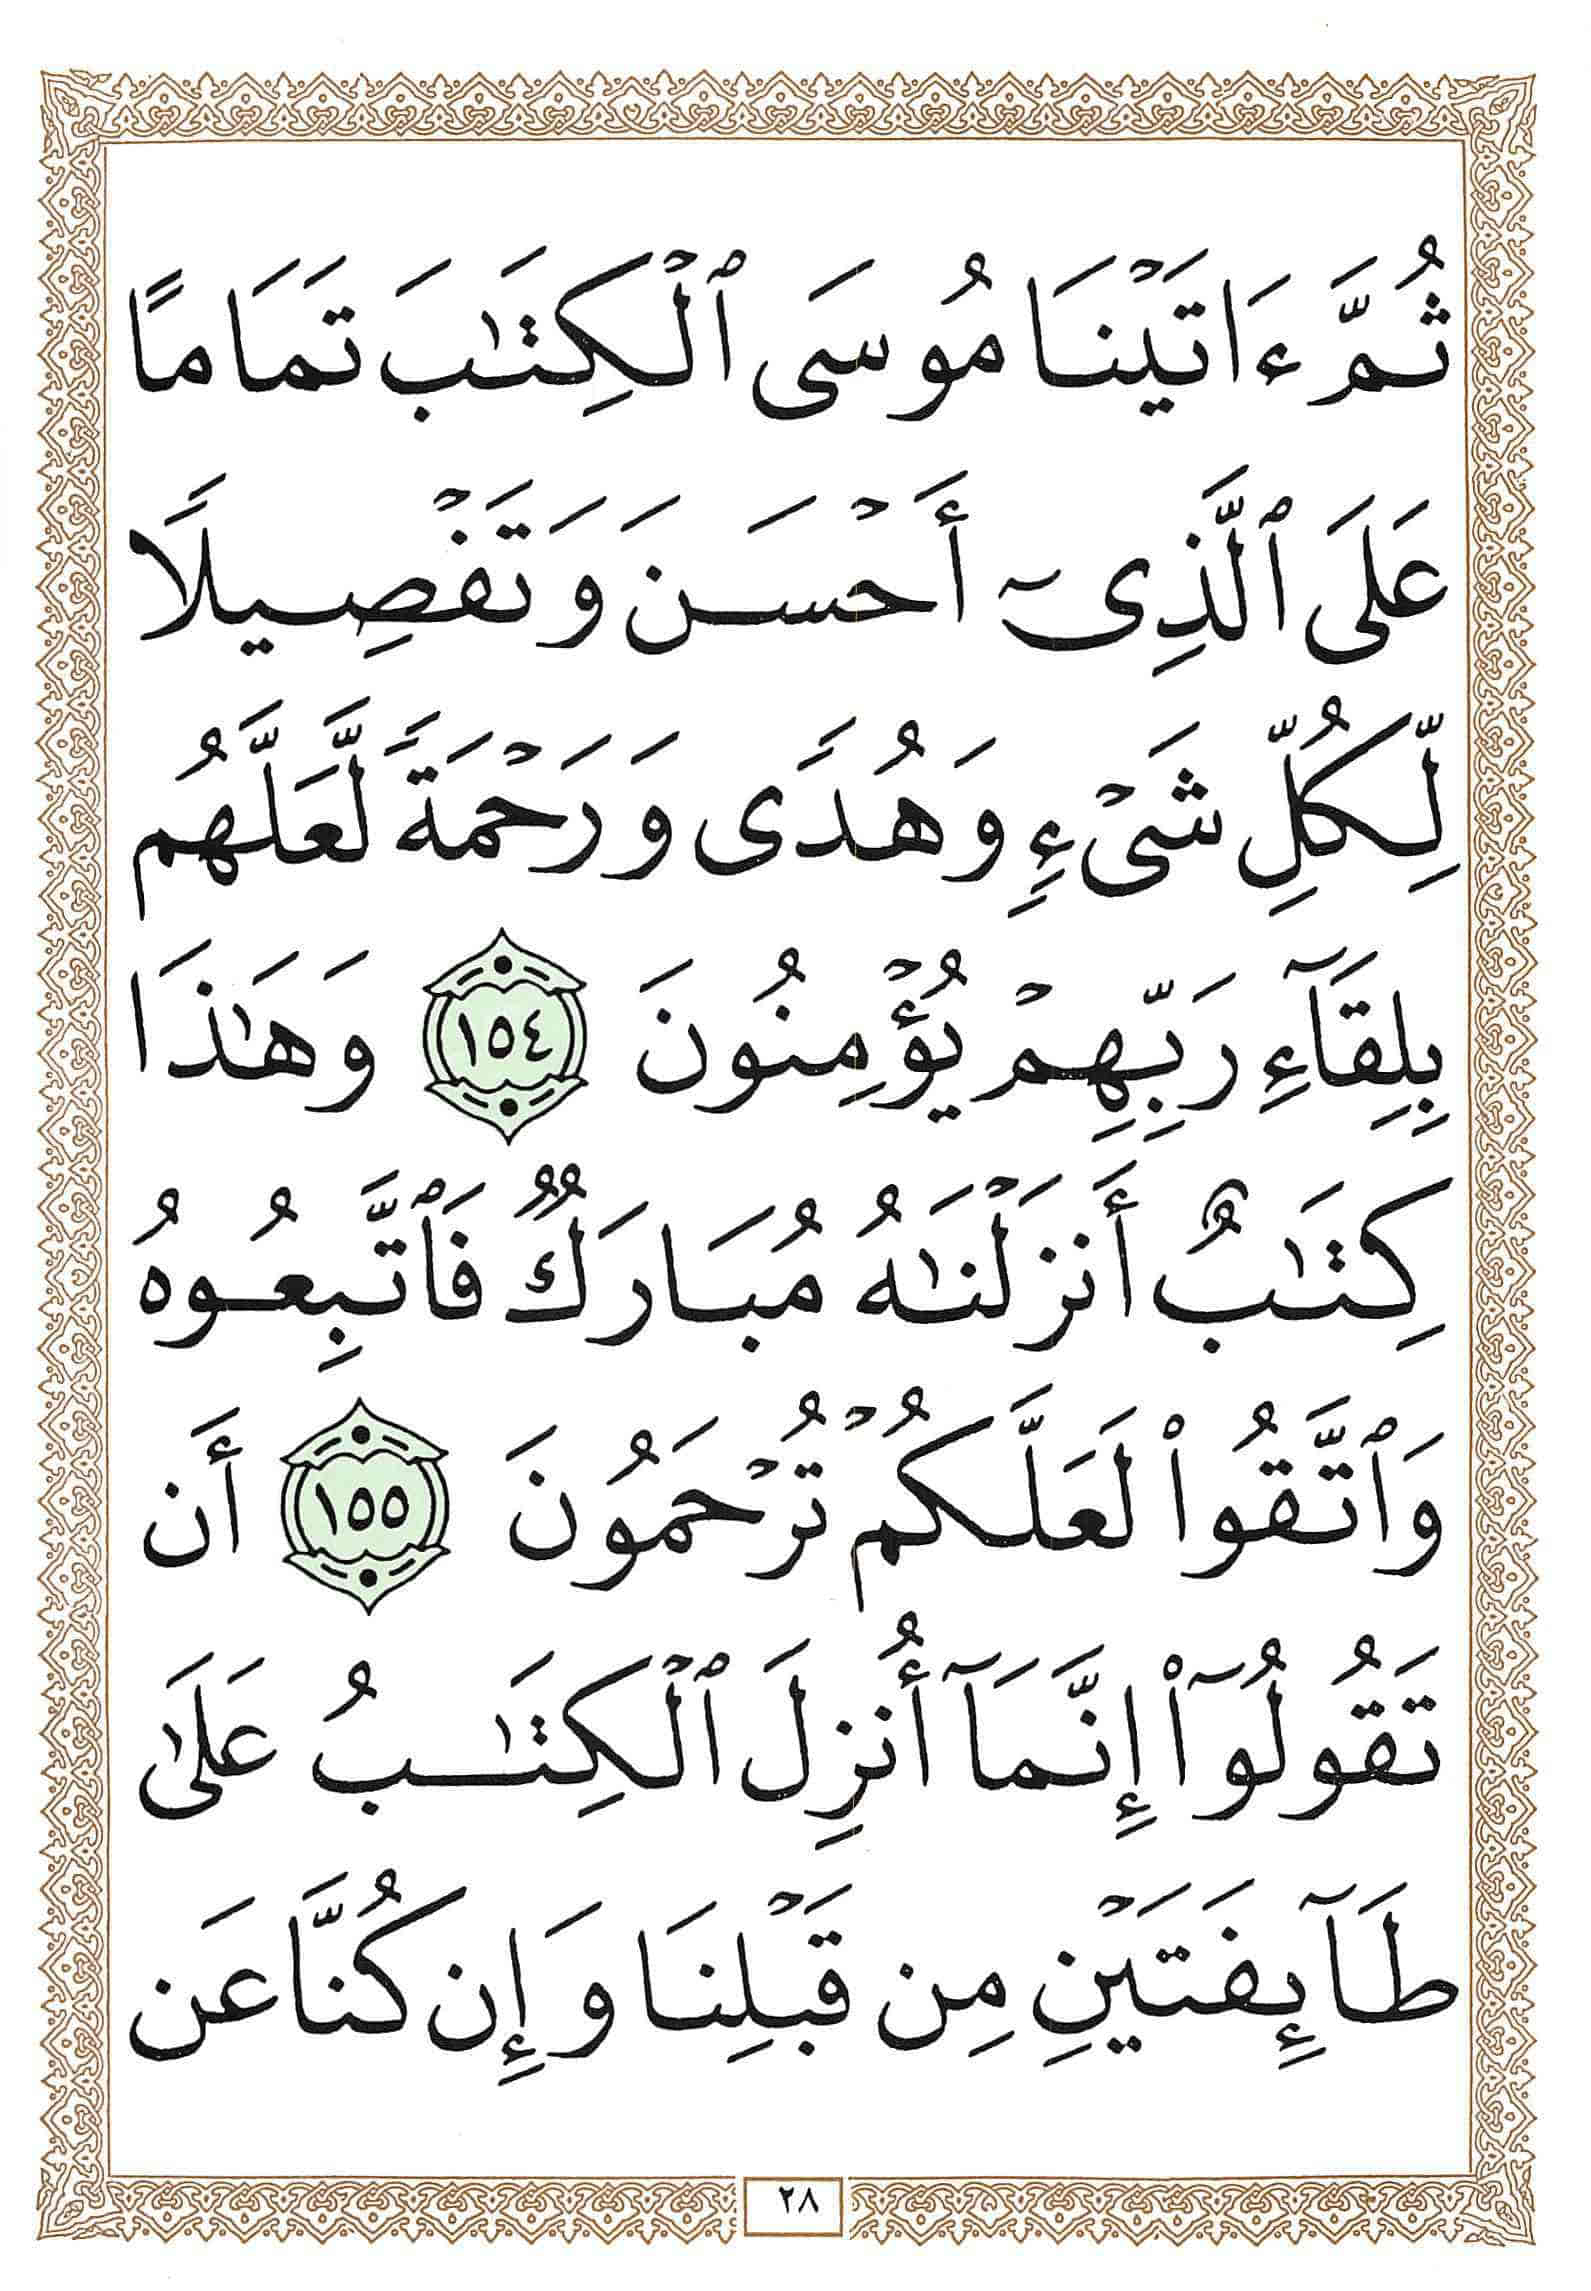 ثُمَّ ءَاتَيْنَا مُوسَى ٱلْكِتَٰبَ تَمَامًا
عَلَى ٱلَّذِىٓ أَحْسَنَ وَتَفْصِيلًا
لِّكُلِّ شَىْءٍ وَهُدًى وَرَحْمَةً لَّعَلَّهُم
بِلِقَآءِ رَبِّهِمْ يُؤْمِنُونَ ١٥٤ وَهَٰذَا
كِتَٰبٌ أَنزَلْنَٰهُ مُبَارَكٌ فَٱتَّبِعُوهُ
وَٱتَّقُوا۟ لَعَلَّكُمْ تُرْحَمُونَ ١٥٥ أَن
تَقُولُوٓا۟ إِنَّمَآ أُنزِلَ ٱلْكِتَٰبُ عَلَىٰ
طَآئِفَتَيْنِ مِن قَبْلِنَا وَإِن كُنَّا عَن
٢٨